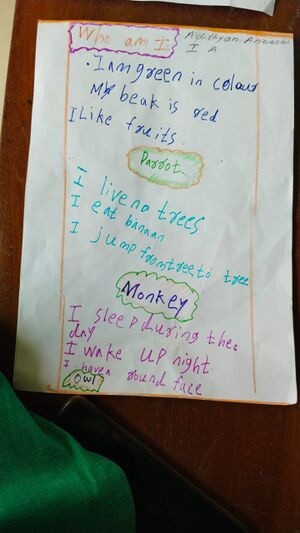 Who am I
Adithyan Aneesh
I A
. I am green in colour
My beak is red
I Like fruits.
Parrot
I live no trees
I eat banaan
I jump from tree to tree
Monkey
I sleep during the
day
I wake up night
I haven round face
Owl